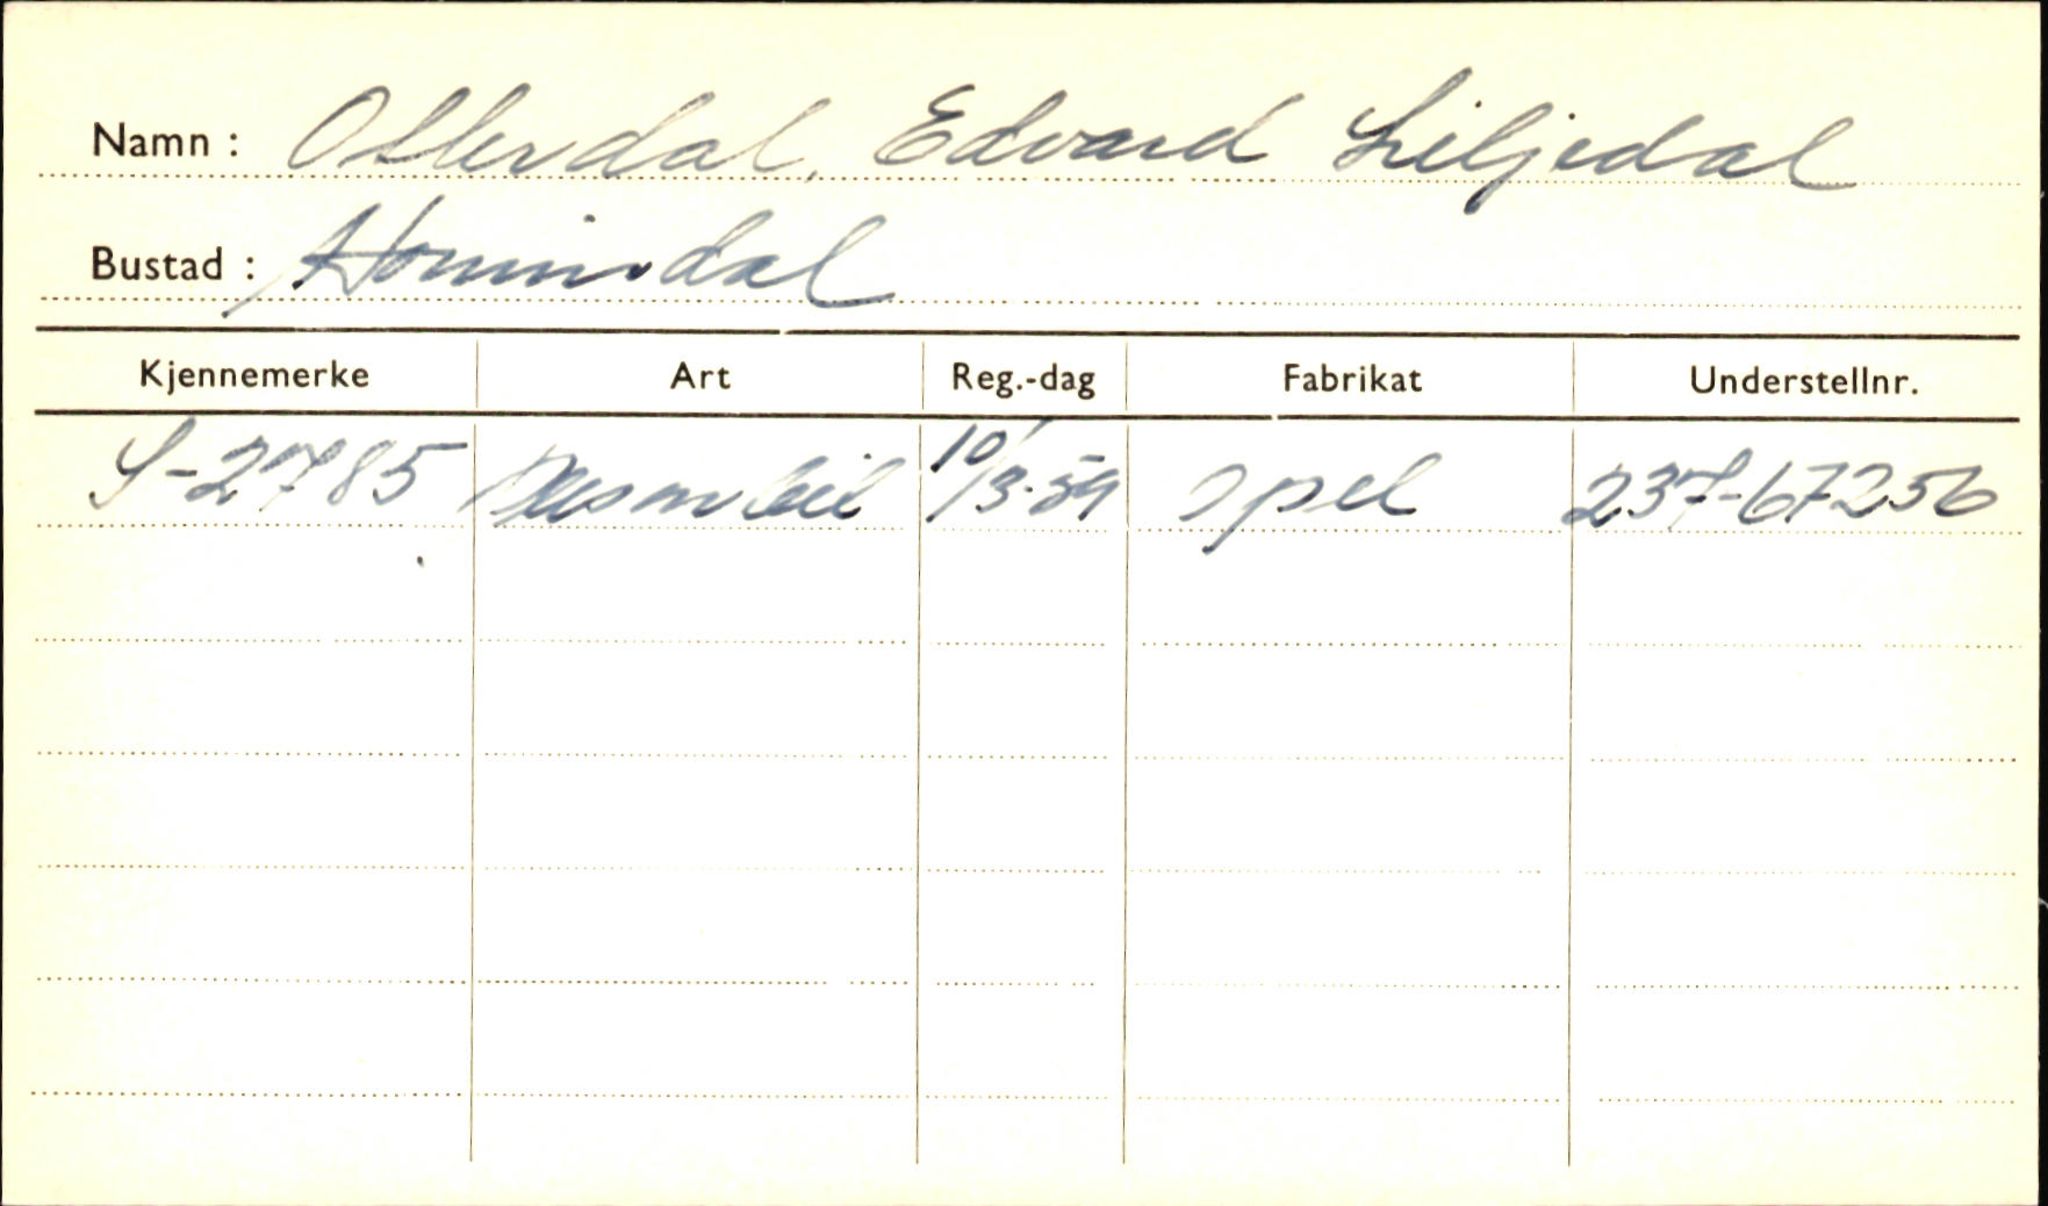 Namn : Otterdal, Edvard Liljedal
Bustad : Hornindal
Kjennemerke Art Reg.-dag Fabrikat Understellnr.
S-2785 Personbil 10/3-59 Opel 237-67256